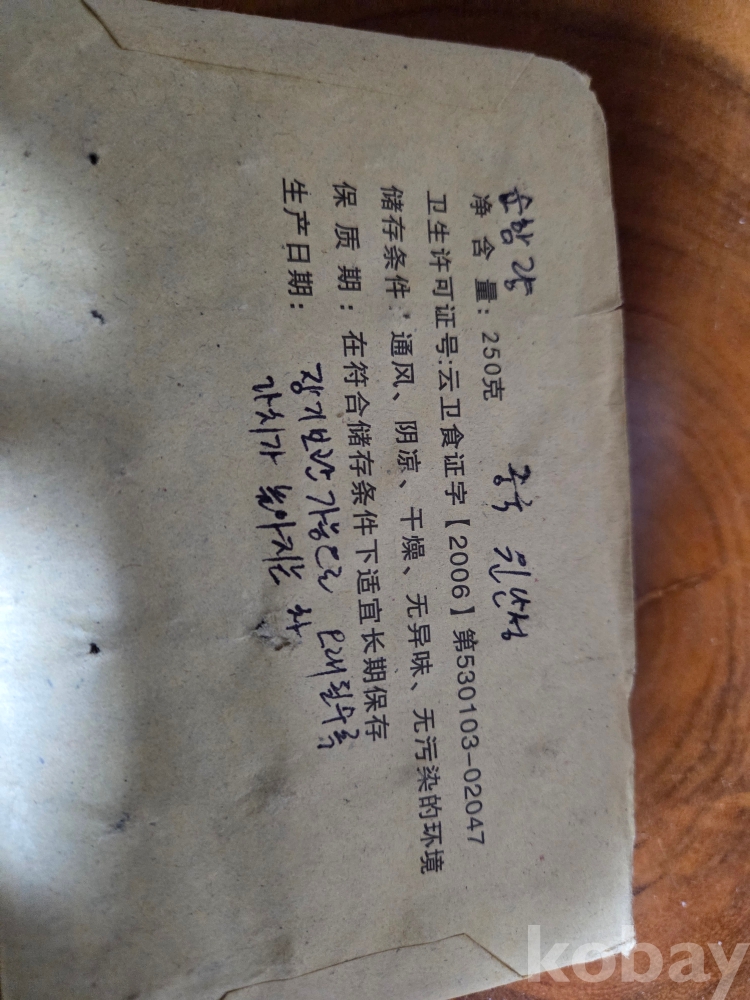 순함량
净 含 量：250克
중국 윈난성
卫生许可证号:云卫食证字【2006】第530103-02047
储存条件：通风、阴凉、干燥、无异味、无污染的环境
保 质 期：在符合储存条件下适宜长期保存
生产日期：
장기보관가능으로 오래될수록
가치가 높아지는 차
kobay